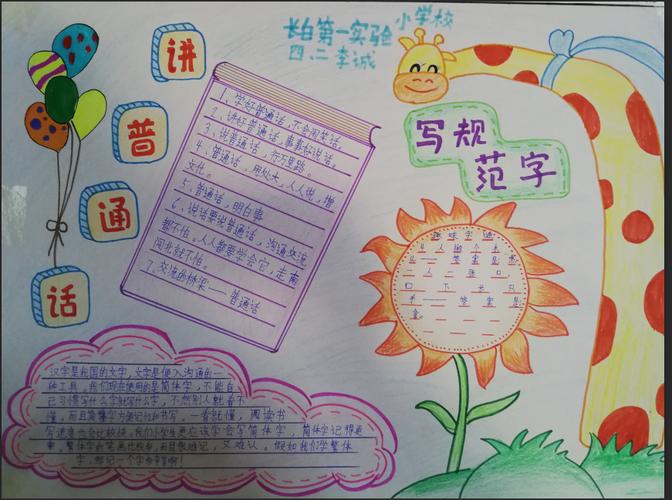 长白第一实验小学校
四.二李诚
讲
普
通
话
写规
范字
1、学好普通话,不会闹笑话。
2、讲好普通话,事事好说话。
3、说普通话,行万里路。
4、普通话,用处大,人人说,增
文化。
5、普通话,明白事
6、说话要说普通话,沟通交流
都不怕。人人都要学会它,走南
闯北就不怕。
7、交流的桥梁——普通话
趣味字谜
答案是
二人二张口
口下
答案是
汉字是我国的文字,文字是使人沟通的一
种工具。我们现在使用的是简体字,不能自
己习惯写什么字就写什么字,不然别人就看不
懂,而且简体字方便记忆和书写,一看就懂,阅读书
写速度也会比较快,我们小学生更应该学会写简体字
繁体字笔画比较多,而且很难记,又难认。假如我们学繁体
字